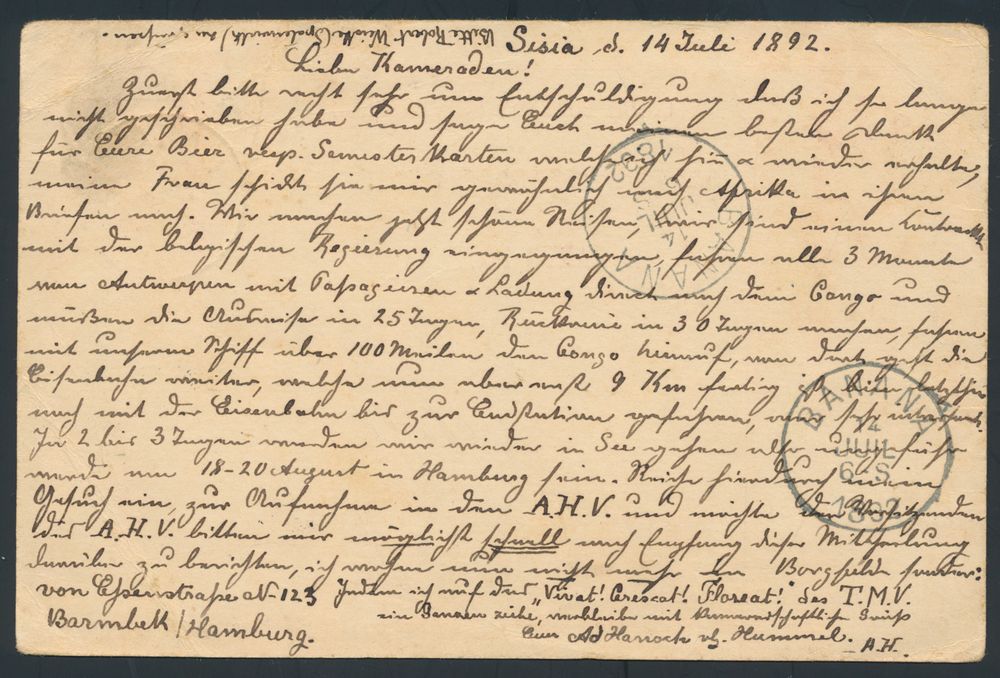 Bitte Robert Weichelt (Spalenwirth) zu grüßen.
Sisia, d. 14 Juli 1892.
Lieben Kameraden!
Zuerst bitte recht sehr um Entschuldigung daß ich so lange
nicht geschrieben habe und sage Euch meinen besten Dank
für Eure Bier resp. Semester Karten welche ich hin & wieder erhalte,
meine Frau schickt sie mir gewöhnlich nach Afrika in ihren
Briefen nach. Wir machen jetzt schöne Reisen, wir sind einen Contract
mit der belgischen Regierung eingegangen, fahren alle 3 Monate
von Antwerpen mit Passagieren & Ladung direct nach dem Congo und
müßen die Ausreise in 25 Tagen, Rückreise in 30 Tagen machen, fahren
mit unserm Schiff über 100 Meilen den Congo hinauf, von dort geht die
Eisenbahn weiter, welche nun aber erst 9 Km fertig ist, bin letzthin
auch mit der Eisenbahn bis zur Endstation gefahren, war sehr interessant.
In 2 bis 3 Tagen werden wir wieder in See gehen und
werde am 18-20 August in Hamburg sein. Reiche hierdurch mein
Gesuch ein, zur Aufnahme in den A.H.V. und möchte den Vorsitzenden
des A.H.V. bitten mir möglichst schnell nach Empfang dieser Mittheilung
darüber zu berichten, ich wohne nun nicht mehr in Borgfelde sondern:
von Essenstraße No 123
Barmbek / Hamburg.
Indem ich auf das „Vivat! Crescat! Floreat! des T.M.V.
ein Ganzen ziehe, verbleibe mit kameradschaftlichem Gruß
Euer Ad Harrock vlg. Hummel. A.H.
BANANA
14 JUIL
6-S
1892
BANANA
14
JUIL
6-S
1892